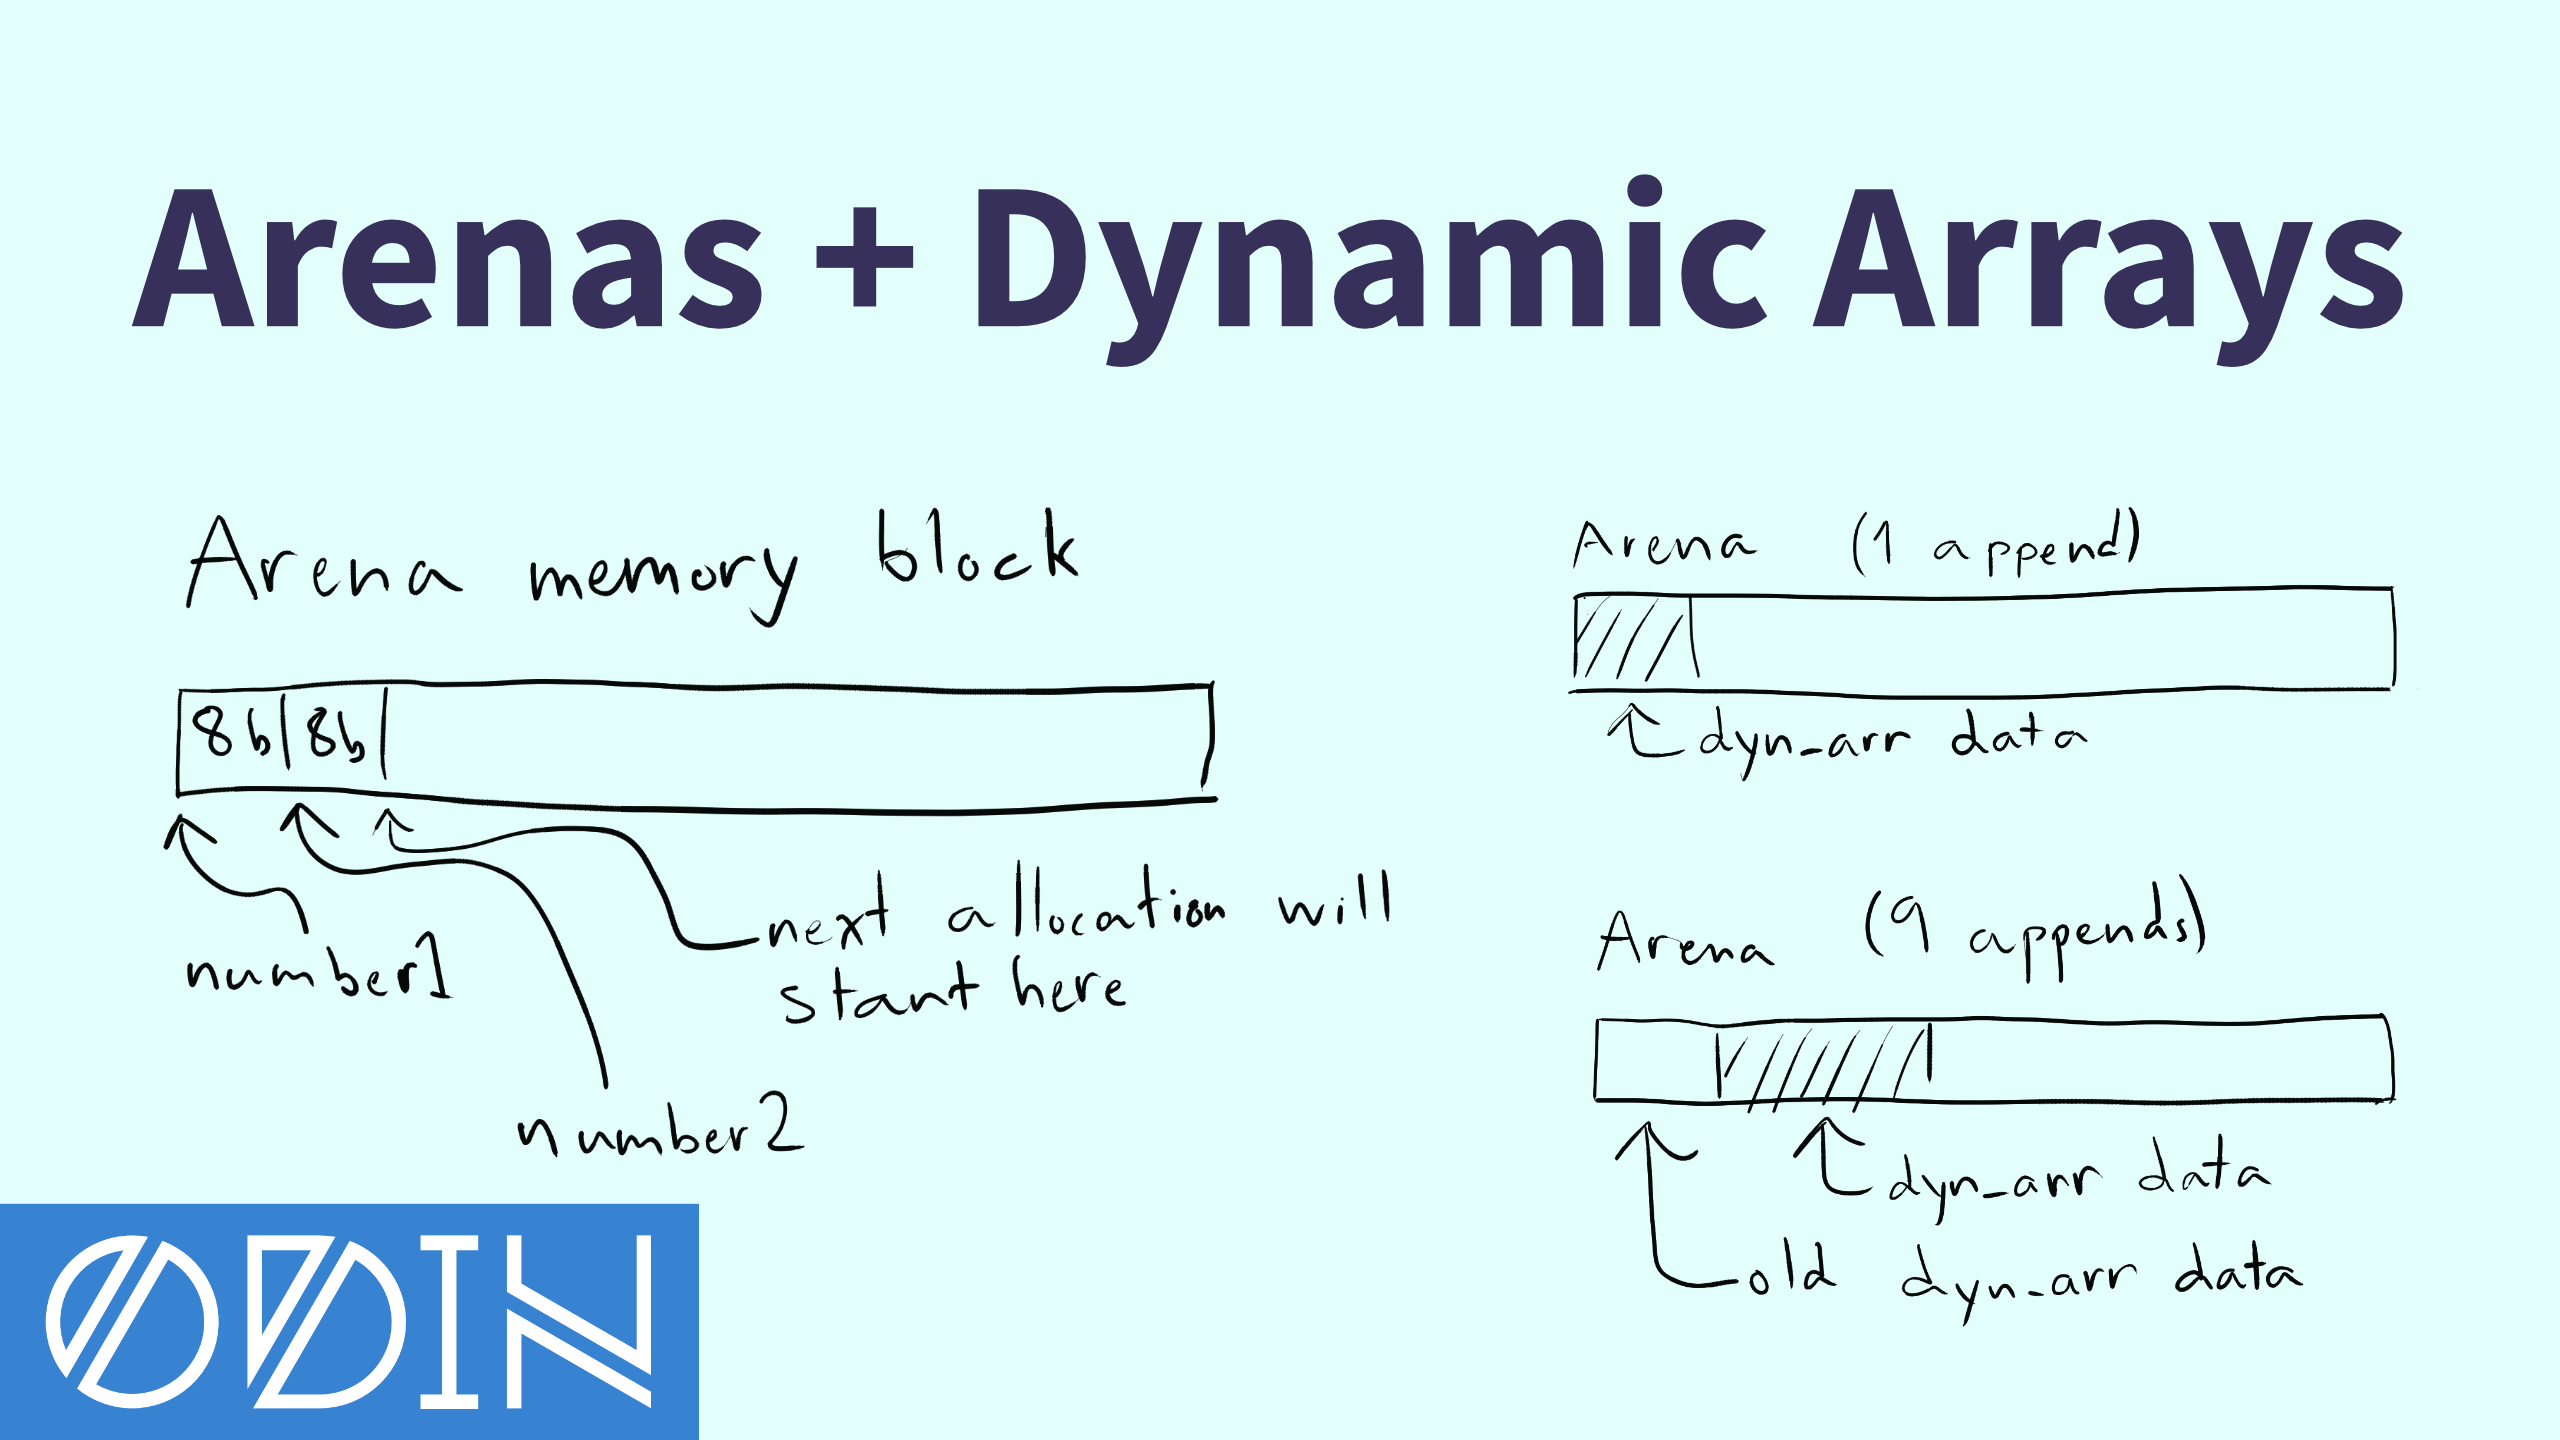 Arenas + Dynamic Arrays
Arena memory block
8b 8b
number1
number2
next allocation will
start here
Arena (1 append)
dyn_arr data
Arena (9 appends)
dyn_arr data
old dyn_arr data
ODIN